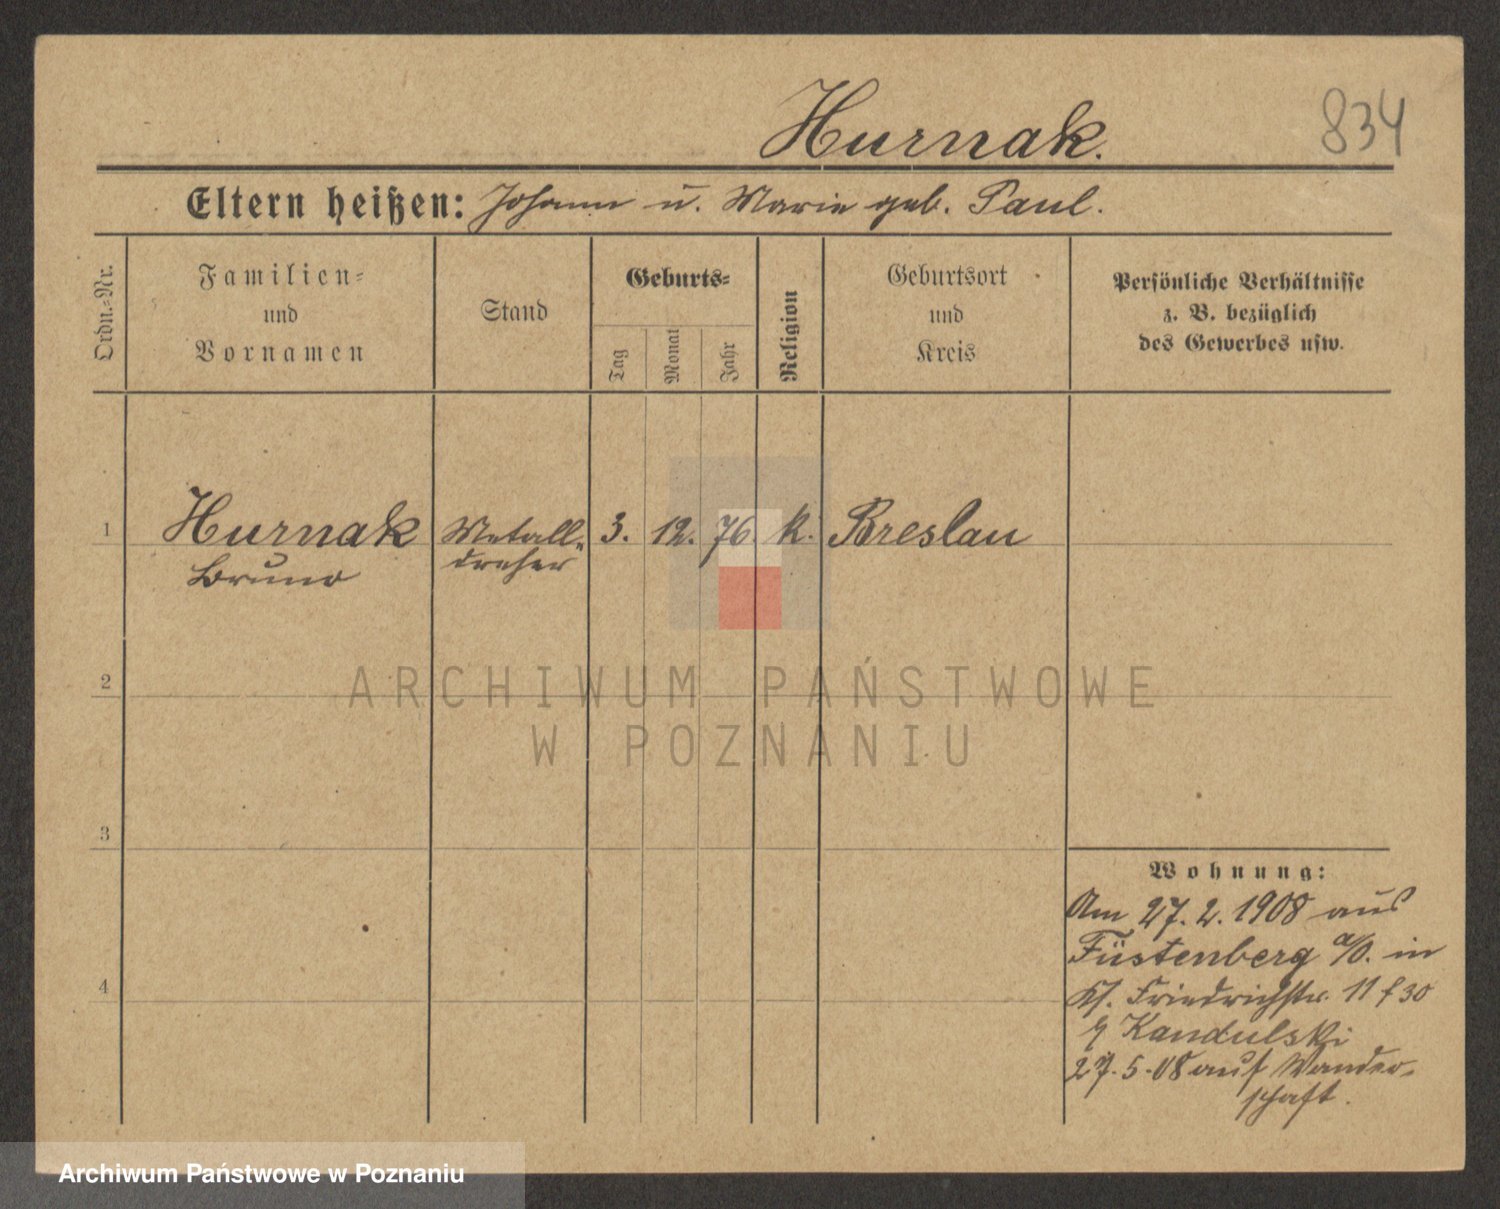 Hurnak.
834
Eltern heißen: Johann u. Marie geb. Paul.
Ordn.-Nr.
Familien-
und
Vornamen
Stand
Geburts-
Tag
Monat
Jahr
Religion
Geburtsort
und
Kreis
Persönliche Verhältnisse
z. B. bezüglich
des Gewerbes usw.
1
Hurnak
Bruno
Metall-
dreher
3. 12. 76. k. Breslau
2
ARCHIWUM PAŃSTWOWE
W POZNANIU
3
Wohnung:
Am 27. 2. 1908 aus
Füstenberg a/O. in
Friedrichstr. 11 f 30
Kandulski
27.5.08 auf Wander-
schaft.
4
Archiwum Państwowe w Poznaniu